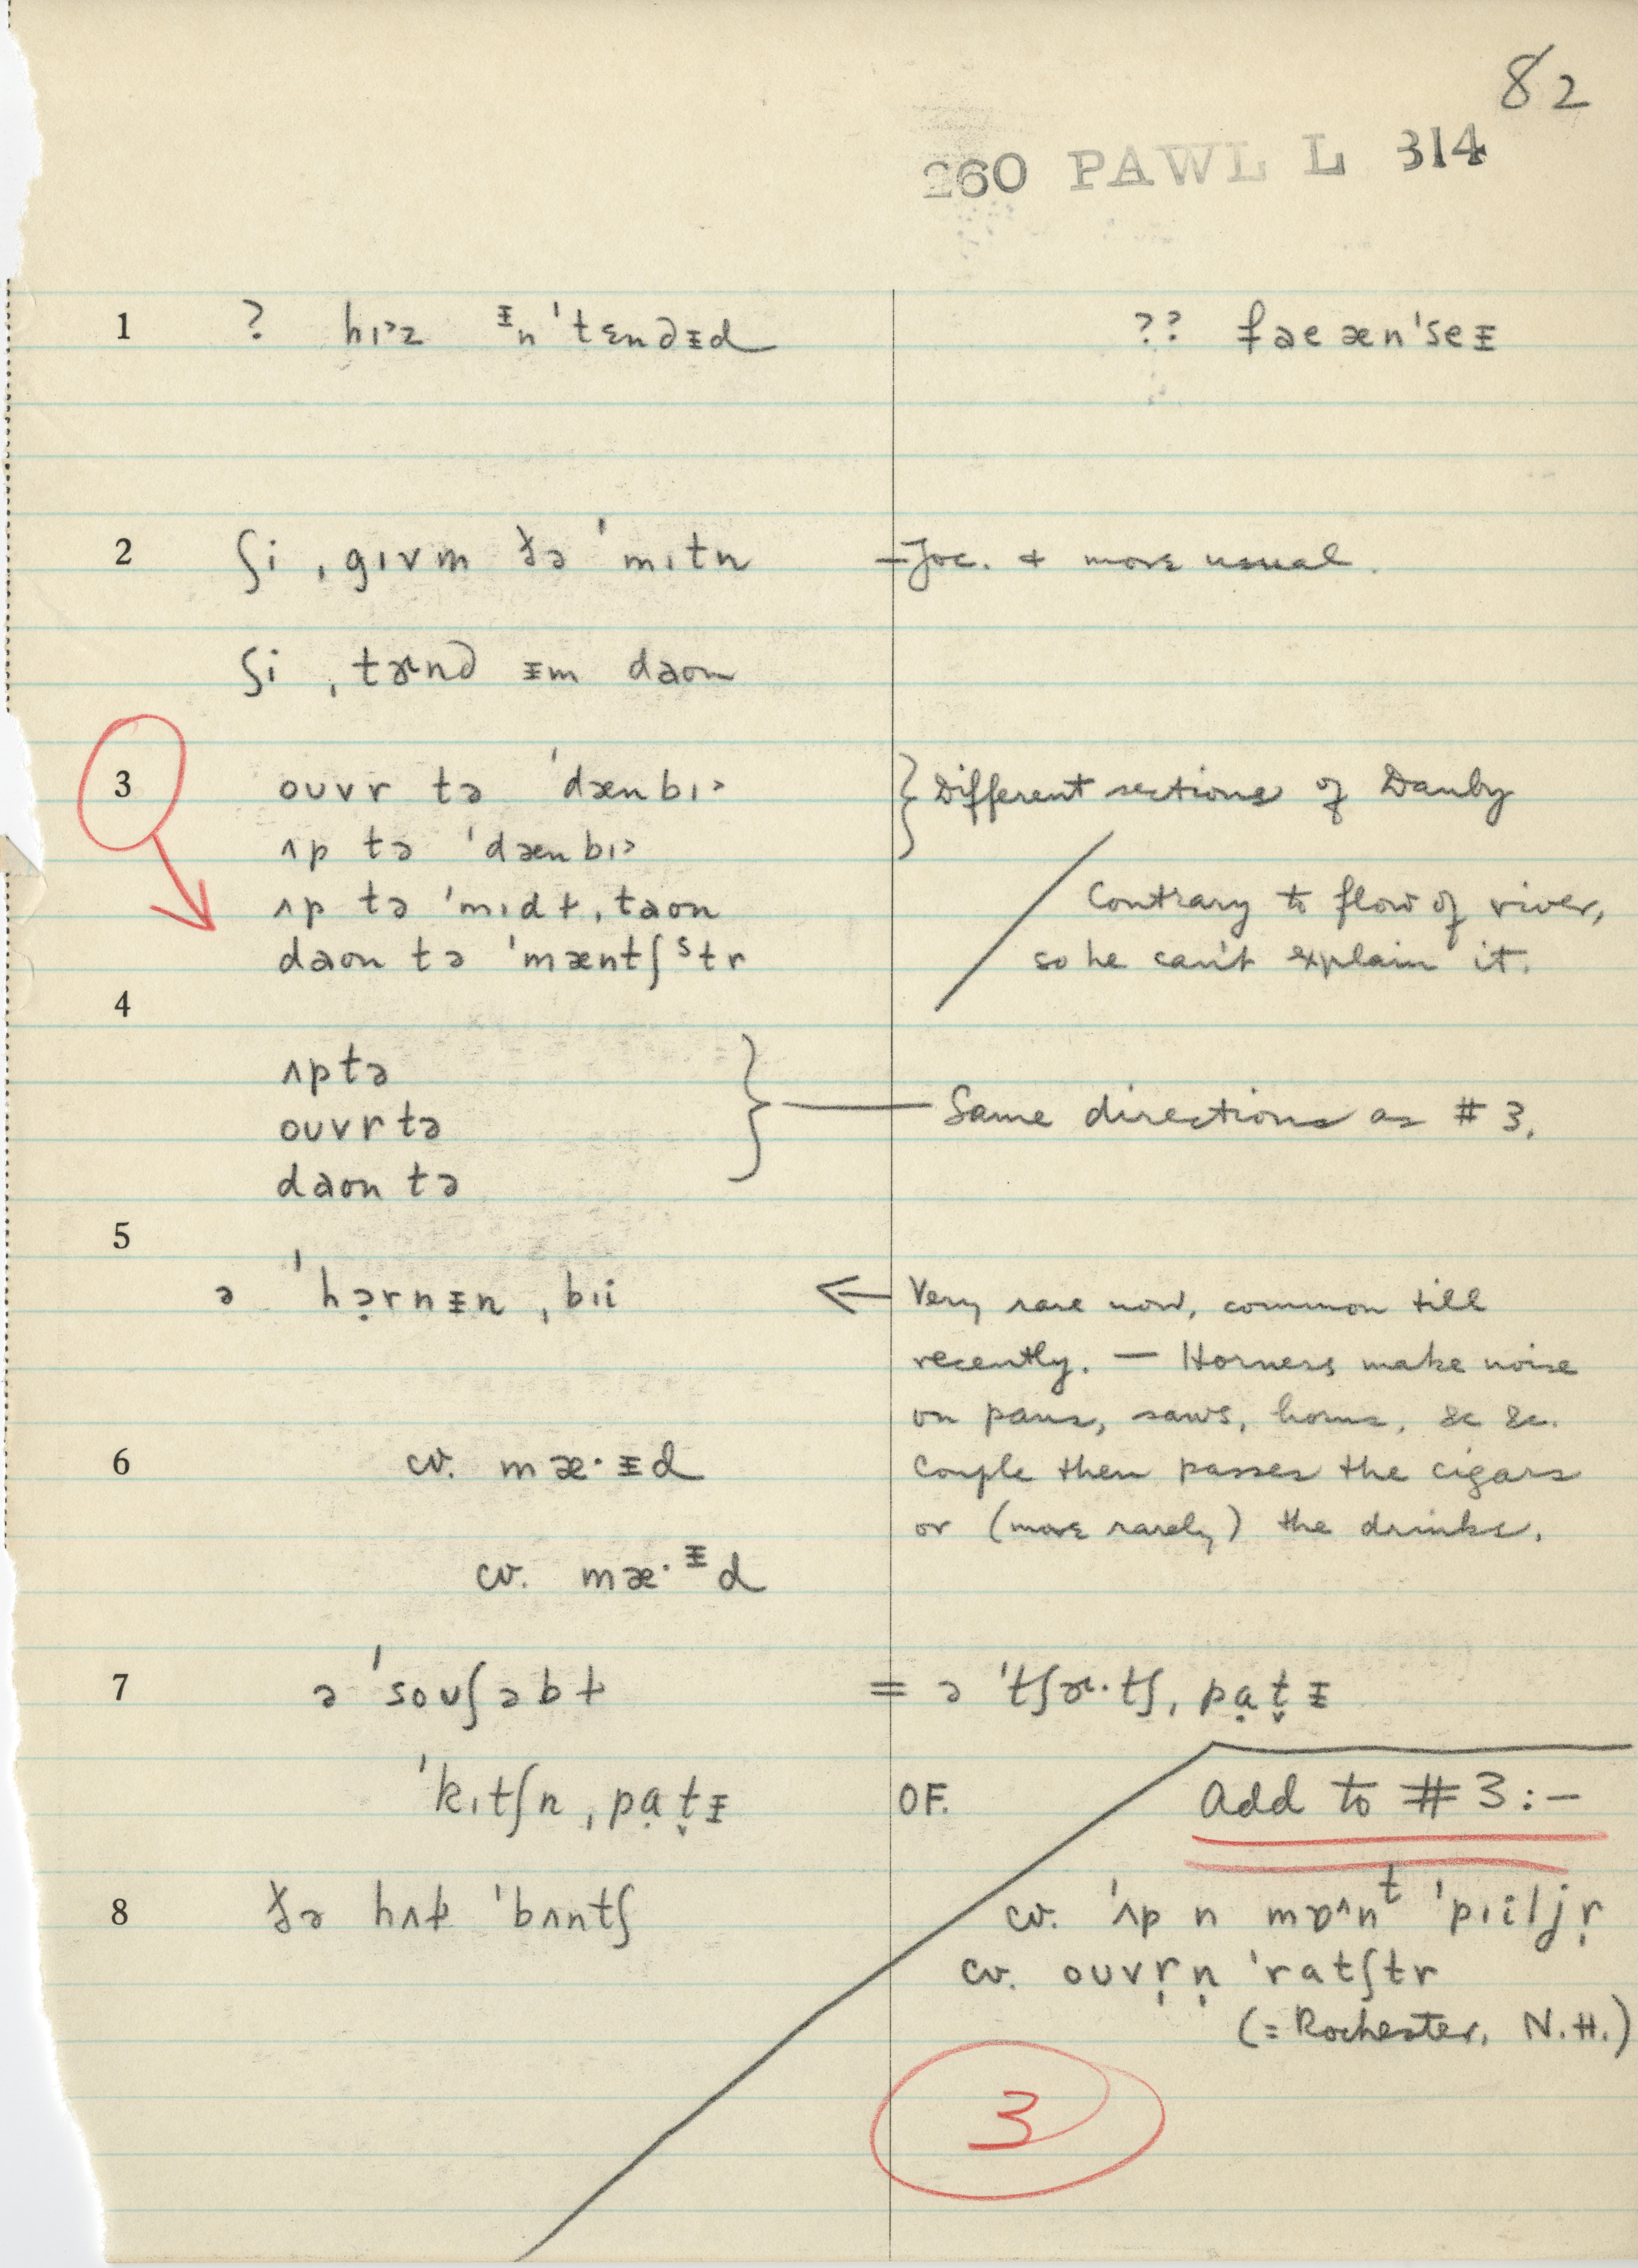 82
260 PAWL L 314
1 ? hɪ˃z ᵻn ˈtɛndᵻd ?? fɪəeænˈseᵻ
2 ʃi ˌgɪvm ðə ˈmɪtn – Joc. + more usual.
ʃi ˌtɚnd ᵻm daʊn
3 oʊvr tə ˈdænbɪ˃ } Different sections of Danby
ʌp tə ˈdænbɪ˃
ʌp tə ˈmɪdɫˌtaʊn Contrary to flow of river,
daʊn tə ˈmæntʃˢtr so he can't explain it.
4
ʌptə
oʊvrtə } — Same directions as # 3.
daʊn tə
5
ə ˈhɔ̣rnᵻnˌbɪi ← Very rare now, common till
recently. — Horners make noise
on pans, saws, horns, &c &c.
6 cv. mæ·ᵻd Couple then passes the cigars
or (more rarely) the drinks.
cv. mæ·ᵻd
7 ə ˈsoʊʃəbɫ = ə ˈtʃɚ·tʃˌpạt̬ᵻ
ˈkɪtʃnˌpạt̬ᵻ OF. Add to # 3:–
8 ðə hʌɫ ˈbʌntʃ cv. ˈʌp n mɒʌnᵗ ˈpɪiljr̩
cv. oʊvr̩n̩ ˈratʃtr
(= Rochester, N.H.)
3